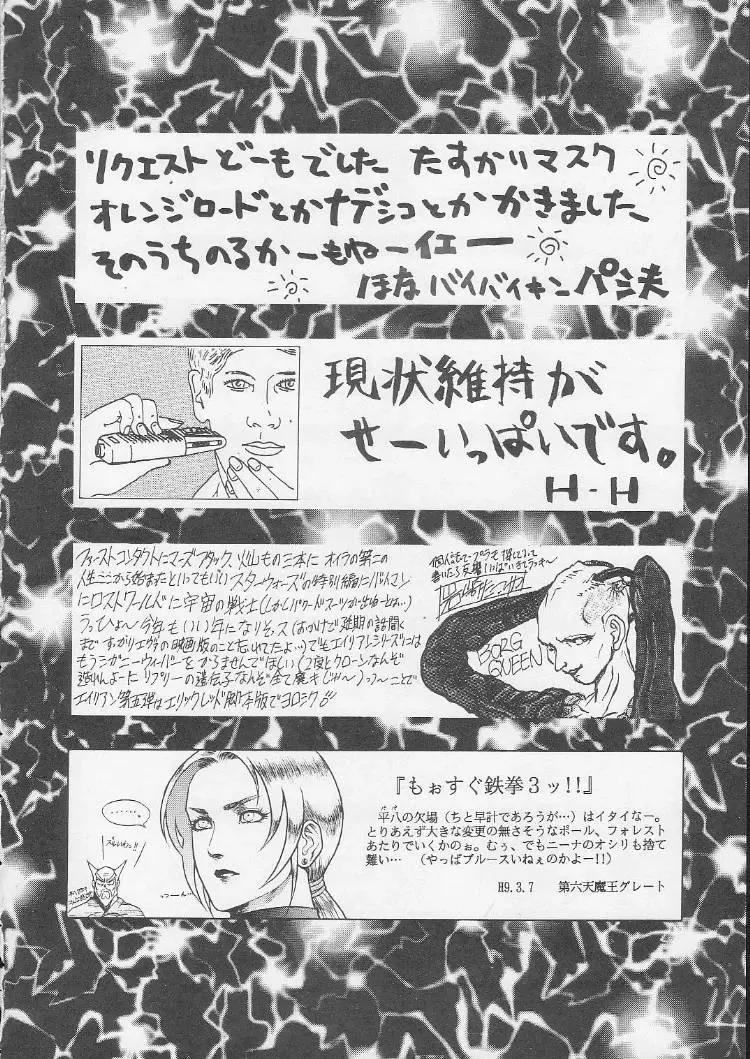 リクエストどーもでした たすかりマスク
オレンジロードとかナデシコとかかきました、
そのうちのるかーもねーイエー
ほな バイバイキン パミ夫
現状維持が
せーいっぱいです。
H-H
ファーストコンタクトにマーズアタック、火山もの三本に オイラの第二の
人生ここから始まったといってもいい スターウォーズの特別編にバットマン
にロストワールドに宇宙の戦士(しかしパワードスーツが出ねーとは…)
うっひょ〜 今年もいい年になりそっス(おかげで延期の話聞く
まで すっかりエヴァの映画版のことわすれてたよ…)でもエイリアンシリーズには
もうシガニーウィーバーをからませんでほしい(2度とクローンなんぞ
造んなよーに リプリーの遺伝子なんぞ全て廃キじゃ〜)っつ〜ことで
エイリアン第五弾はエリックレッド脚本版でヨロシク
BORG
QUEEN
『もぉすぐ鉄拳3ッ!!』
平八の欠場(ちと早計であろうが…)はイタイなー。
とりあえず大きな変更の無さそうなポール、フォレスト
あたりでいくかのぉ。むぅ、でもニーナのオシリも捨て
難い… (やっぱブルースいねぇのかよー!!)
H9.3.7 第六天魔王グレート
……。
っつーん